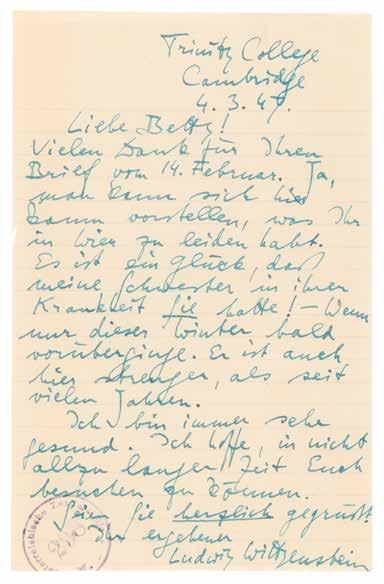 Trinity College
Cambridge
4. 3. 47.
Liebe Betty!
Vielen Dank für Ihren
Brief vom 14. Februar. Ja,
man kann sich hier
kaum vorstellen, was Ihr
in Wien zu leiden habt.
Es ist ein Glück, daß
meine Schwester in ihrer
Krankheit Sie hatte! – Wenn
nur dieser Winter bald
vorüberginge. Er ist auch
hier strenger, als seit
vielen Jahren.
Ich bin immer sehr
gesund. Ich hoffe, in nicht
allzu langer Zeit Euch
besuchen zu können.
Seien Sie herzlich gegrüßt
Ihr ergebener
Ludwig Wittgenstein